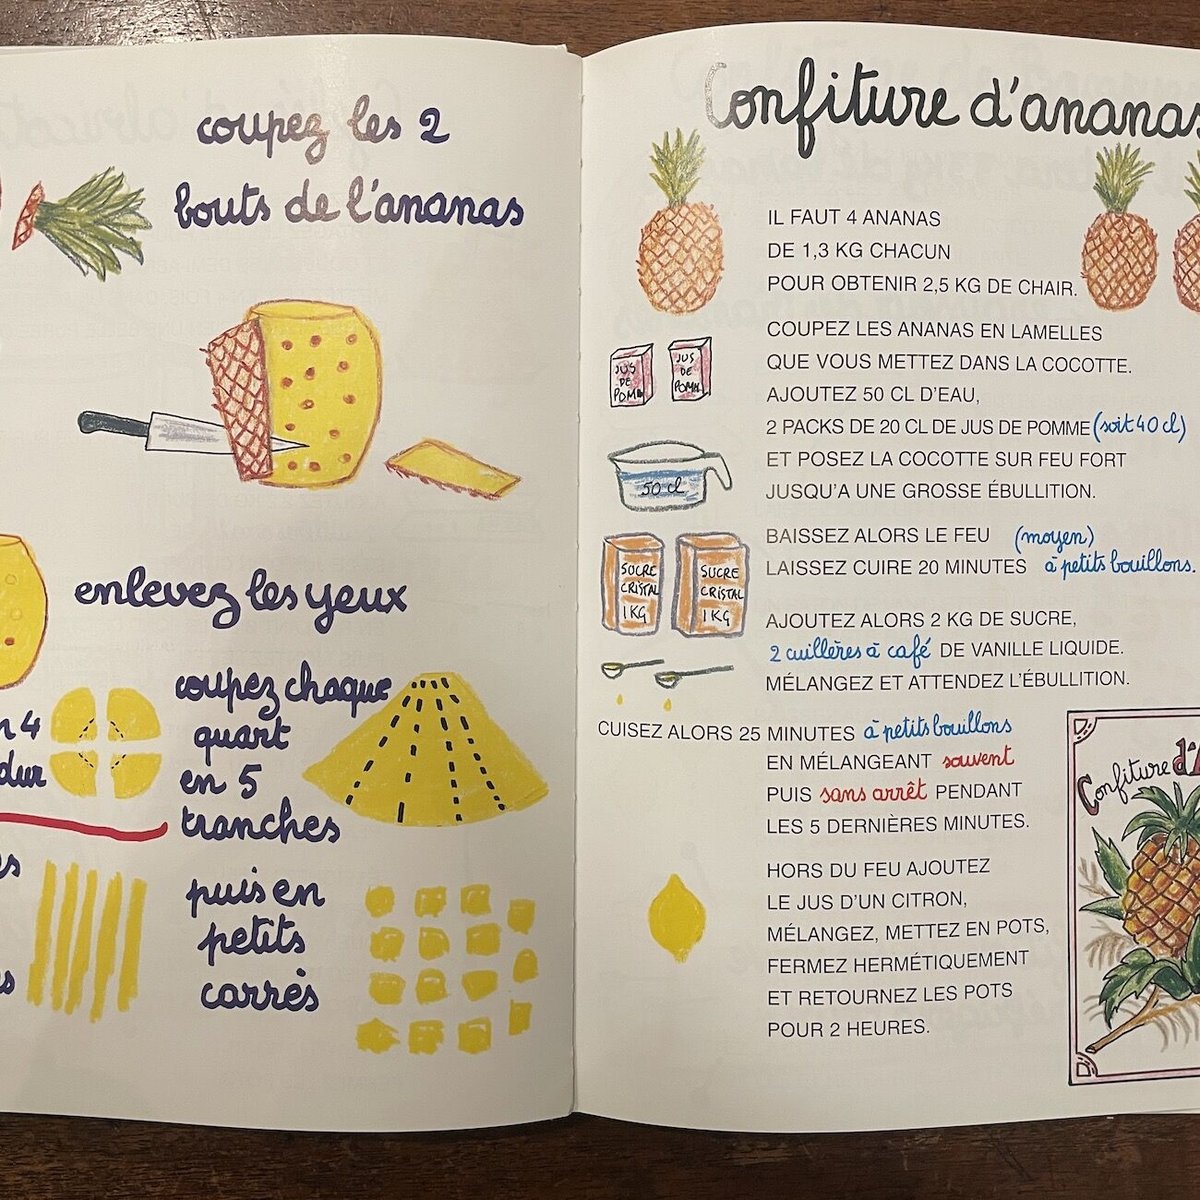 coupez les 2
bouts de l'ananas
enlevez les yeux
n 4
dur
coupez chaque
quart
en 5
tranches
puis en
petits
carrés
Confiture d'ananas
IL FAUT 4 ANANAS
DE 1,3 KG CHACUN
POUR OBTENIR 2,5 KG DE CHAIR.
JUS
DE
POM
JUS
DE
POM
COUPEZ LES ANANAS EN LAMELLES
QUE VOUS METTEZ DANS LA COCOTTE.
AJOUTEZ 50 CL D'EAU,
2 PACKS DE 20 CL DE JUS DE POMME (soit 40 cl)
ET POSEZ LA COCOTTE SUR FEU FORT
JUSQU'A UNE GROSSE ÉBULLITION.
50 cl
BAISSEZ ALORS LE FEU (moyen)
LAISSEZ CUIRE 20 MINUTES à petits bouillons.
SUCRE
CRISTAL
1 KG
SUCRE
CRISTAL
1 KG
AJOUTEZ ALORS 2 KG DE SUCRE,
2 cuillères à café DE VANILLE LIQUIDE.
MÉLANGEZ ET ATTENDEZ L'ÉBULLITION.
CUISEZ ALORS 25 MINUTES à petits bouillons
EN MÉLANGEANT souvent
PUIS sans arrêt PENDANT
LES 5 DERNIÈRES MINUTES.
HORS DU FEU AJOUTEZ
LE JUS D'UN CITRON,
MÉLANGEZ, METTEZ EN POTS,
FERMEZ HERMÉTIQUEMENT
ET RETOURNEZ LES POTS
POUR 2 HEURES.
Confiture d'A